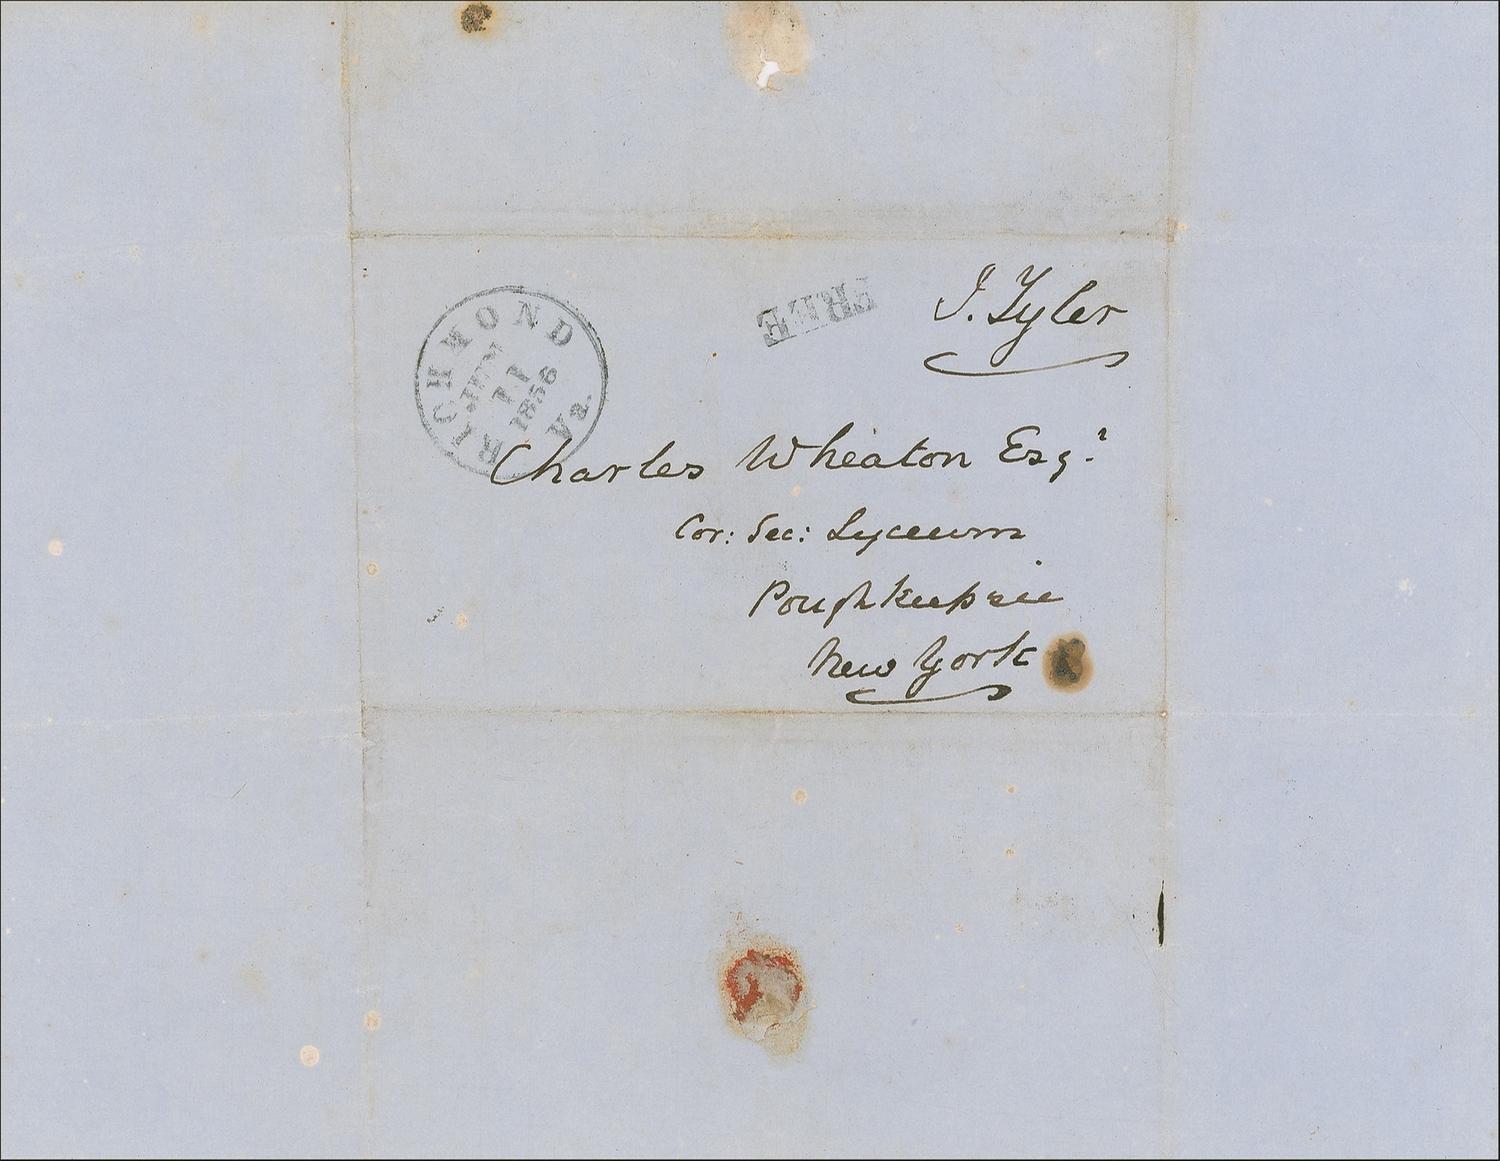 RICHMOND Va.
11
1856
FREE
J. Tyler
Charles Wheaton Esqr.
Cor: Sec: Lyceum
Poughkeepsie
New York